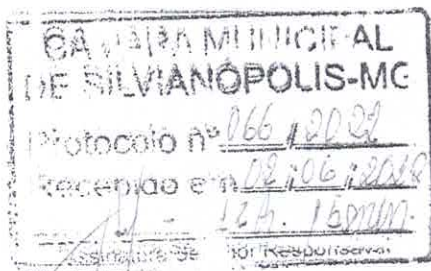 CÂMARA MUNICIPAL
DE SILVIANÓPOLIS-MG
Protocolo nº 066 / 2022
Recebido em 02 / 06 / 2022
12h. 15min.
Assinatura do Responsável